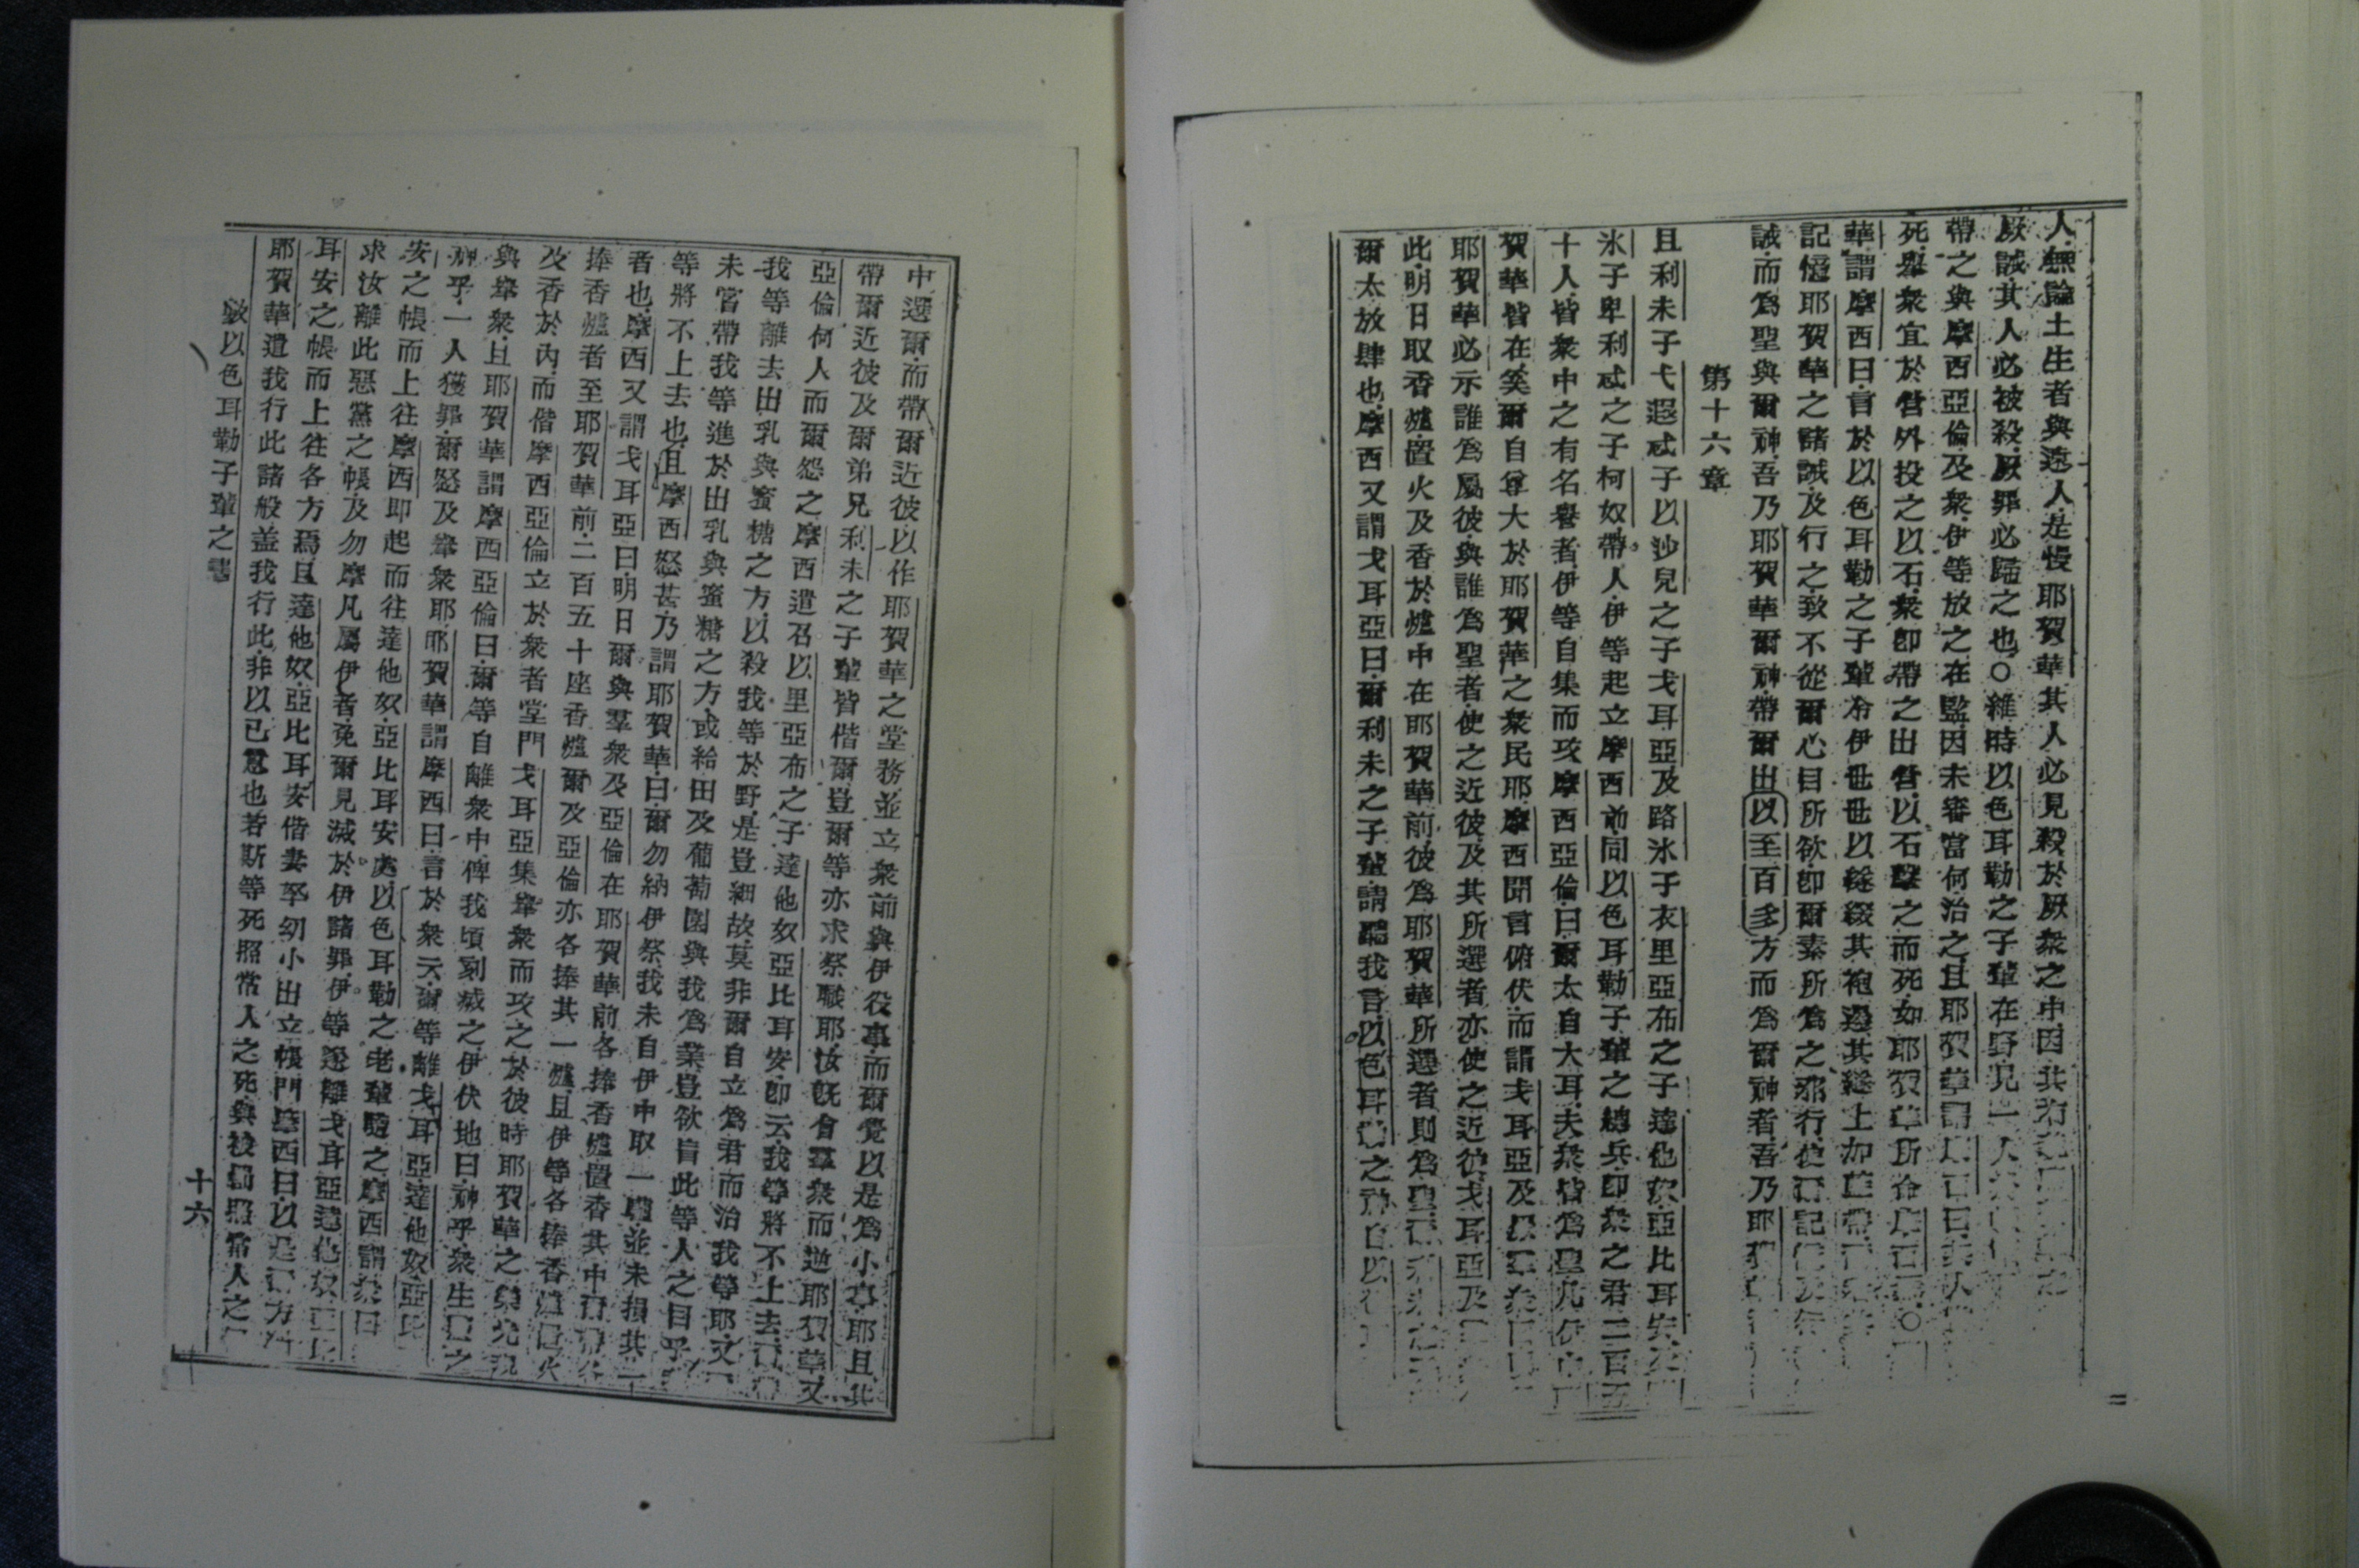 人無論土生者與遠人是慢耶賀華其人必見殺於厥衆之中因其
厥誡其人必被殺厥罪必歸之也○維時以色耳勒之子輩在野見一人
帶之與摩西亞倫及衆伊等放之在監因未審當何治之且耶賀華謂
死羣衆宜於營外投之以石衆卽帶之出營以石擊之而死如耶賀華所命摩西○
華謂摩西曰言於以色耳勒之子輩令伊世世以繸綴其袍邊其繸上加藍帶
記憶耶賀華之諸誡及行之致不從爾心目所欲卽爾素所爲之邪行使爾記
誡而爲聖與爾神吾乃耶賀華爾神帶爾出以至百多方而爲爾神者吾乃耶賀
第十六章
且利未子弋遐忒子以沙兒之子戈耳亞及路氷子衣里亞布之子達他奴亞比耳安
氷子卑利忒之子柯奴帶人伊等起立摩西前同以色耳勒子輩之總兵卽衆之君二百五
十人皆衆中之有名譽者伊等自集而攻摩西亞倫曰爾太自大耳夫衆皆爲聖凡
賀華皆在奚爾自尊大於耶賀華之衆民耶摩西聞言俯伏而謂戈耳亞及
耶賀華必示誰爲屬彼與誰爲聖者使之近彼及其所選者亦使之近彼戈耳亞及
此明日取香爐置火及香於爐中在耶賀華前彼爲耶賀華所選者則爲聖
爾太放肆也摩西又謂戈耳亞曰爾利未之子輩請聽我言以色耳勒之神自以
中選爾而帶爾近彼以作耶賀華之堂務並立衆前與伊役事而爾覺以是爲小事耶且其
帶爾近彼及爾弟兄利未之子輩皆偕爾豈爾等亦求祭職耶汝旣會羣衆而逆耶賀華又
亞倫何人而爾怨之摩西遣召以里亞布之子達他奴亞比耳安卽云我等將不上去
我等離去出乳與蜜糖之方以殺我等於野是豈細故莫非爾自立爲君而治我等耶又
未嘗帶我等進於出乳與蜜糖之方或給田及葡萄園與我爲業豈欲盲此等人之目乎
等將不上去也且摩西怒甚乃謂耶賀華曰爾勿納伊祭我未自伊中取一驢並未損其一
者也摩西又謂戈耳亞曰明日爾與羣衆及亞倫在耶賀華前各捧香爐置香其中
捧香爐者至耶賀華前二百五十座香爐爾及亞倫亦各捧其一爐且伊等各捧香爐置火
及香於內而偕摩西亞倫立於衆者堂門戈耳亞集羣衆而攻之於彼時耶賀華之榮光現
與羣衆且耶賀華謂摩西亞倫曰爾等自離衆中俾我頃刻滅之伊伏地曰神乎衆生之
神乎一人獲罪爾怒及羣衆耶耶賀華謂摩西曰言於衆云爾等離戈耳亞達他奴亞比
安之帳而上往摩西卽起而往達他奴亞比耳安處以色耳勒之老輩隨之摩西謂衆曰
求汝離此惡黨之帳及勿摩凡屬伊者免爾見滅於伊諸罪伊等遂離戈耳亞達他奴亞比
耳安之帳而上往各方焉且達他奴亞比耳安偕妻孥幼小出立帳門摩西曰以是
耶賀華遣我行此諸般盖我行此非以已意也若斯等死照常人之死與被罰照常人之
數以色耳勒子輩之書
十六